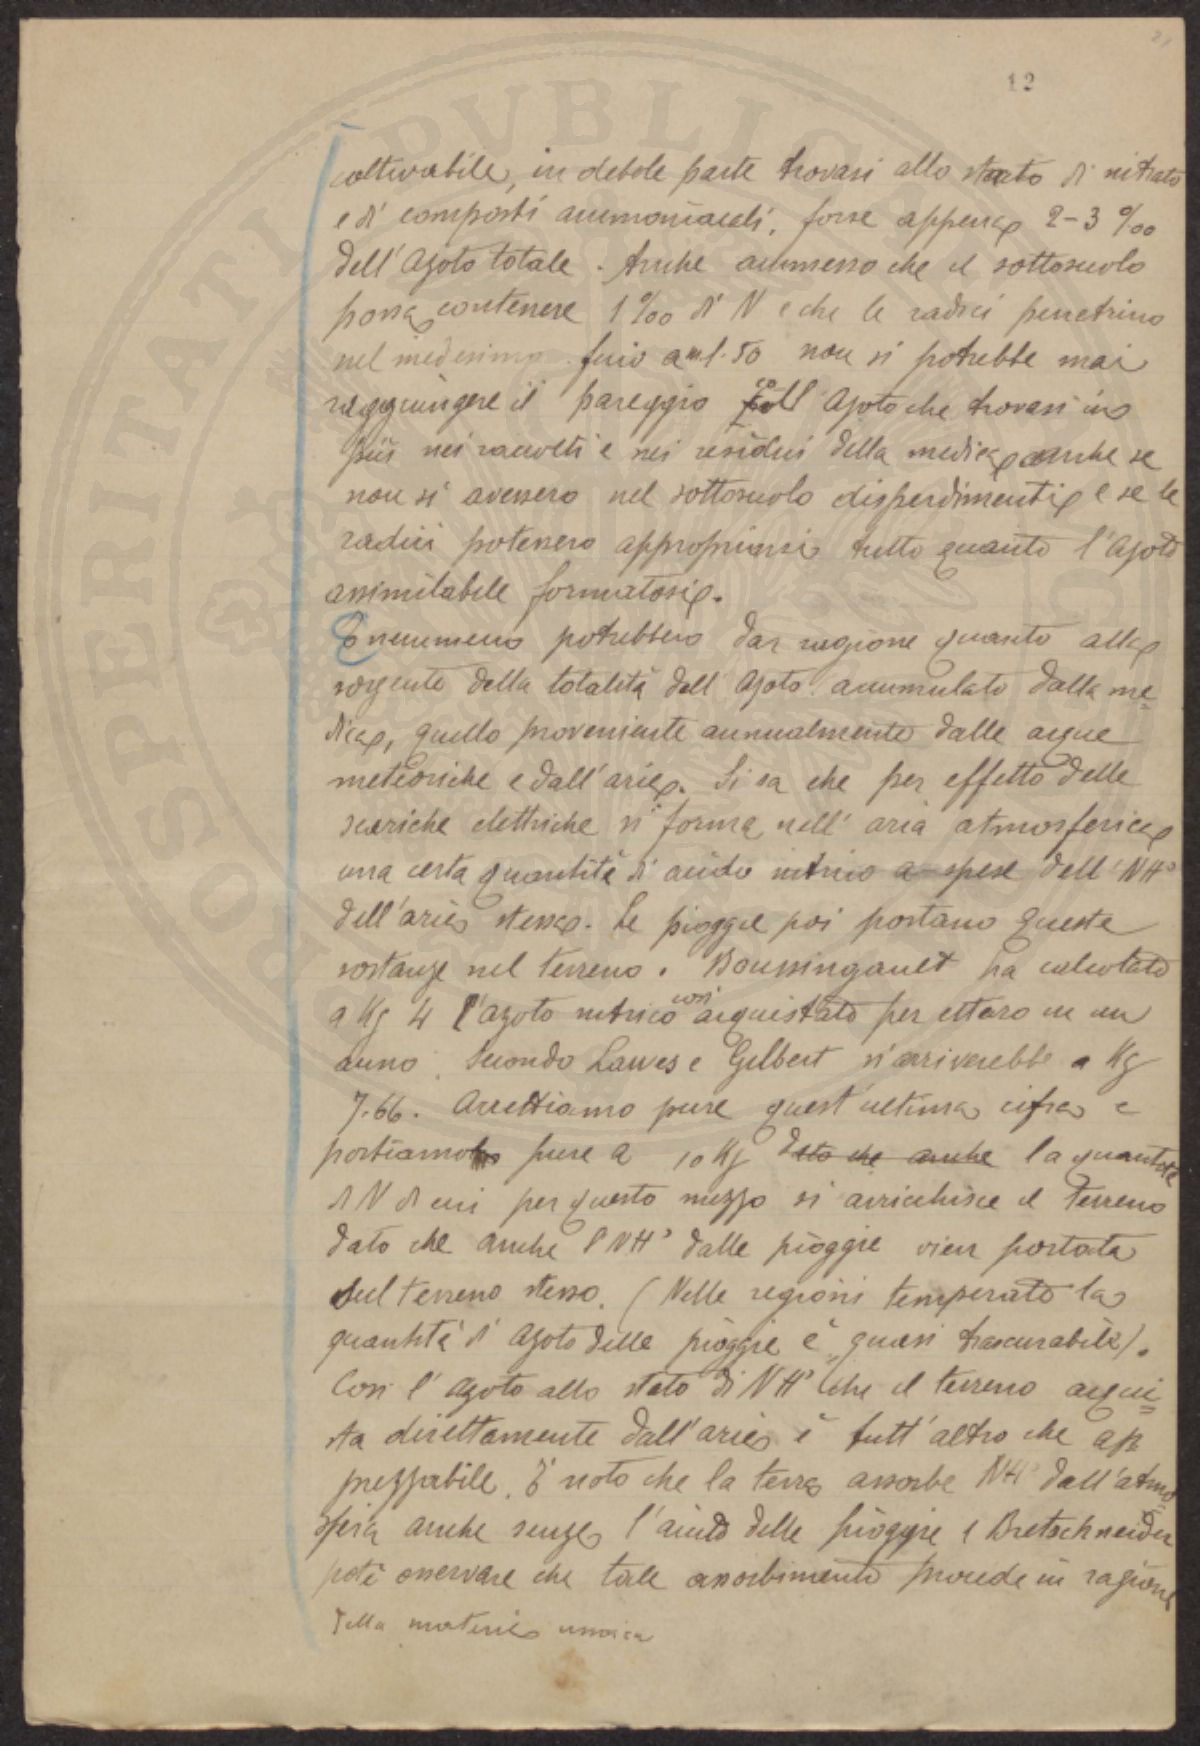 12
coltivabile, in debole parte trovasi allo stato di nitrato
e di composti ammoniacali, forse appena 2-3 ‰
dell'azoto totale. Anche ammesso che il sottosuolo
possa contenere 1‰ di N e che le radici penetrino
nel medesimo fino a m 1.50 non si potrebbe mai
raggiungere il pareggio coll azoto che trovasi in
più nei raccolti e nei residui della medica anche se
non si avessero nel sottosuolo disperdimenti e se le
radici potessero appropriarsi tutto quanto l'azoto
assimilabile formatosi.
Nemmeno potrebbero dar ragione quanto alla
sorgente della totalità dell azoto accumulato dalla me-
dica, quello proveniente annualmente dalle acque
meteoriche e dall'aria. Si sa che per effetto delle
scariche elettriche si forma nell' aria atmosferica
una certa quantità di acido nitrico a spese dell' NH³
dell'aria stessa. Le pioggie poi portano queste
sostanze nel terreno. Boussingault ha calcolato
a Kg 4 l'azoto nitrico così acquistato per ettaro in un
anno. Secondo Lawes e Gilbert si arriverebbe a Kg
7.66. Accettiamo pure quest'ultima cifra e
portiamola pure a 10 Kg dato che anche la quantità
di N di cui per questo mezzo si arricchisce il terreno
dato che anche l'NH³ dalle pioggie vien portata
sul terreno stesso. (Nelle regioni temperate la
quantità di azoto delle pioggie è quasi trascurabile).
Così l'azoto allo stato di NH³ che il terreno acqui-
sta direttamente dall'aria è tutt'altro che ap
prezzabile. È noto che la terra assorbe NH³ dall'atmo-
sfera anche senza l'aiuto delle pioggie e Bretschneider
potè osservare che tale assorbimento procede in ragione
della materia umica